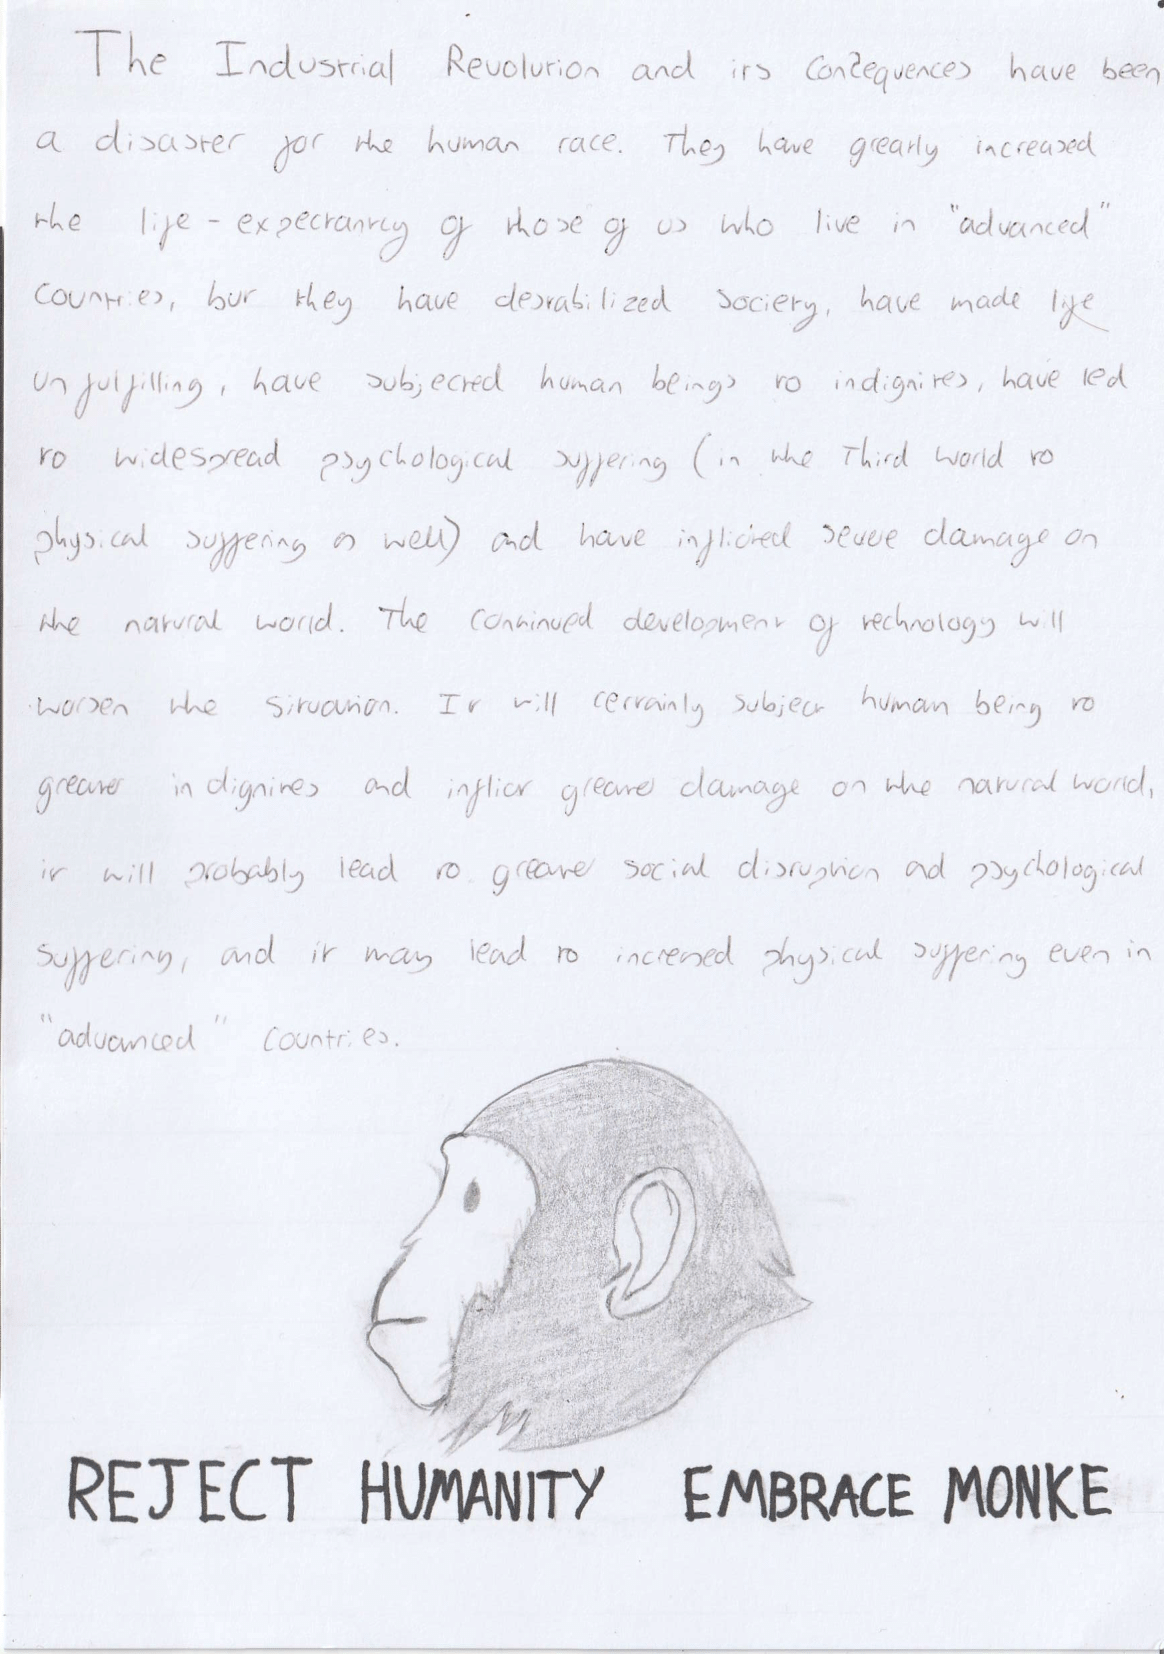 The Industrial Revolution and its Consequences have been
a disaster for the human race. They have greatly increased
the life-expectantcy of those of us who live in "advanced"
Countries, but they have destabilized Society, have made life
unfulfilling, have subjected human beings to indignites, have led
to widespread psychological suffering (in the Third World to
physical suffering as well) and have inflicted severe damage on
the natural world. The Continued development of technology will
worsen the Situation. It will certainly subject human being to
greater indignites and inflict greater damage on the natural world,
it will probably lead to greater social disruption ad psychological
suffering, and it may lead to increased physical suffering even in
"advanced" Countries.
REJECT HUMANITY EMBRACE MONKE